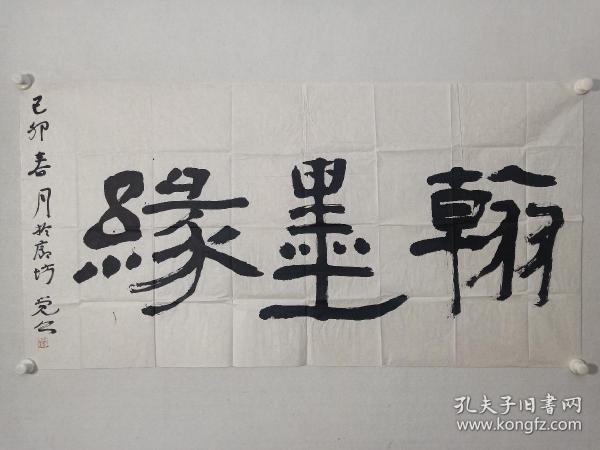 翰墨緣
己卯春月於廊坊
孔夫子旧書网
www.kongfz.com